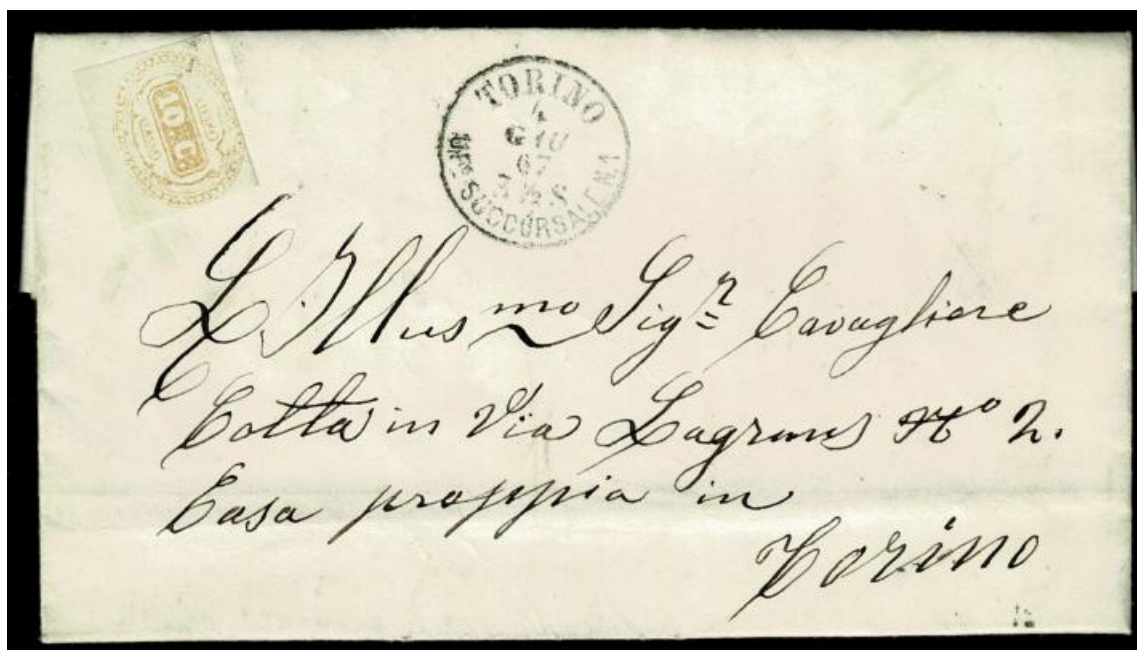 10 C.
TORINO
4
GIU
67
3½ S
UFF.º SUCCURSALE N.1
L'Illus.mo Sig.r Cavagliere
Cotta in Via Lagrans N.º 2.
Casa proppia in
Torino